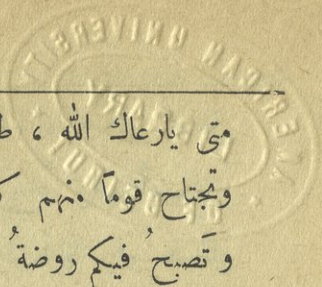 AMERICAN UNIVERSITY
LIBRARY
OF BEIRUT
متى يارعاك الله ، ط
وتجتاح قوماً منهم ك
وتصبحُ فيكم روضةُ